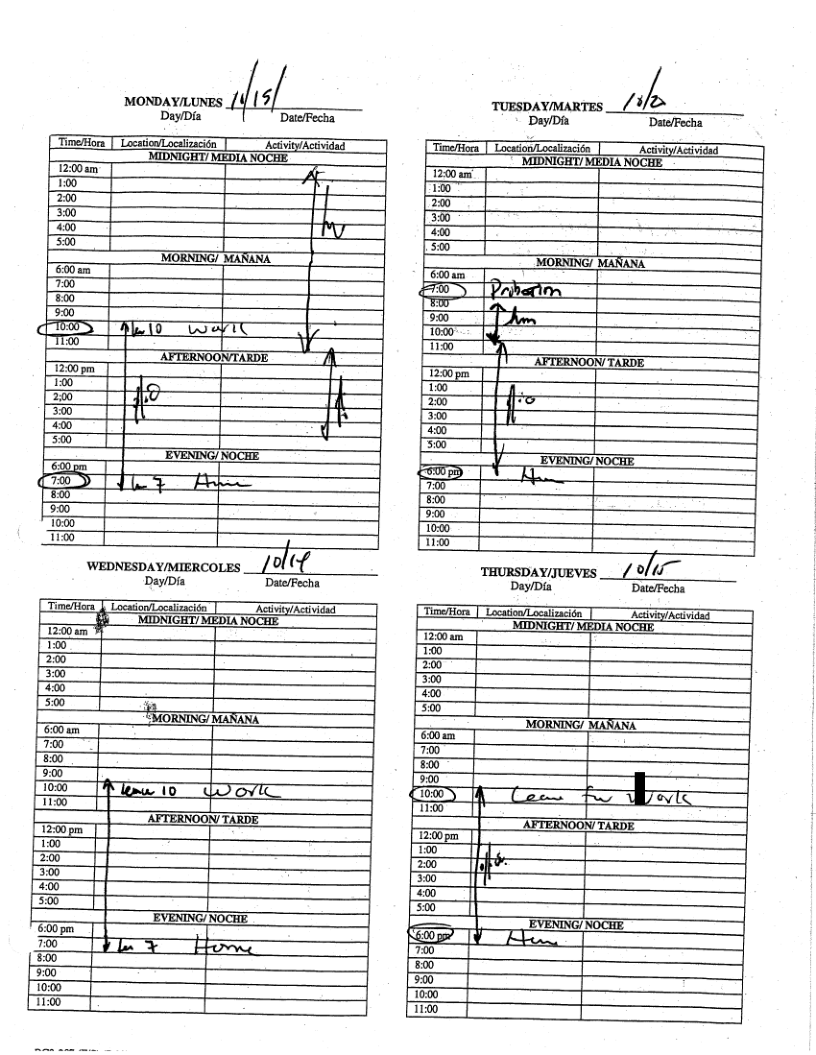 MONDAY/LUNES 10/15/
Day/Día Date/Fecha
Time/Hora Location/Localización Activity/Actividad
MIDNIGHT/ MEDIA NOCHE
12:00 am
1:00
2:00
3:00
4:00
5:00
MORNING/ MAÑANA
6:00 am
7:00
8:00
9:00
10:00 10 work
11:00
AFTERNOON/TARDE
12:00 pm
1:00
2;00
3:00
4:00
5:00
EVENING/ NOCHE
6:00 pm
7:00 7 Home
8:00
9:00
10:00
11:00
TUESDAY/MARTES
Day/Día Date/Fecha
Time/Hora Location/Localización Activity/Actividad
MIDNIGHT/ MEDIA NOCHE
12:00 am
1:00
2:00
3:00
4:00
5:00
MORNING/ MAÑANA
6:00 am
7:00 Probation
8:00
9:00 hm
10:00
11:00
AFTERNOON/ TARDE
12:00 pm
1:00
2:00
3:00
4:00
5:00
EVENING/ NOCHE
6:00 pm
7:00
8:00
9:00
10:00
11:00
WEDNESDAY/MIERCOLES 10/14
Day/Día Date/Fecha
Time/Hora Location/Localización Activity/Actividad
MIDNIGHT/ MEDIA NOCHE
12:00 am
1:00
2:00
3:00
4:00
5:00
MORNING/ MAÑANA
6:00 am
7:00
8:00
9:00
10:00 leave 10 work
11:00
AFTERNOON/ TARDE
12:00 pm
1:00
2:00
3:00
4:00
5:00
EVENING/ NOCHE
6:00 pm
7:00 7 Home
8:00
9:00
10:00
11:00
THURSDAY/JUEVES 10/15
Day/Día Date/Fecha
Time/Hora Location/Localización Activity/Actividad
MIDNIGHT/ MEDIA NOCHE
12:00 am
1:00
2:00
3:00
4:00
5:00
MORNING/ MAÑANA
6:00 am
7:00
8:00
9:00
10:00 Leave for work
11:00
AFTERNOON/ TARDE
12:00 pm
1:00
2:00
3:00
4:00
5:00
EVENING/ NOCHE
6:00 pm
7:00
8:00
9:00
10:00
11:00